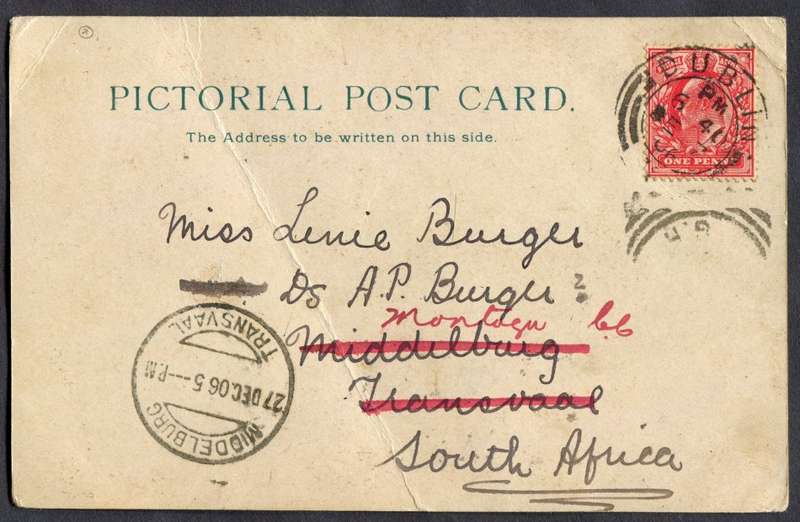 PICTORIAL POST CARD.
The Address to be written on this side.
DUBLIN
PM
ONE PENNY
Miss Linie Burger
Ds A.P. Burger
Montagu
Middelburg
Transvaal
South Africa
TRANSVAAL
27 DEC 06 5---PM
MIDDELBURG